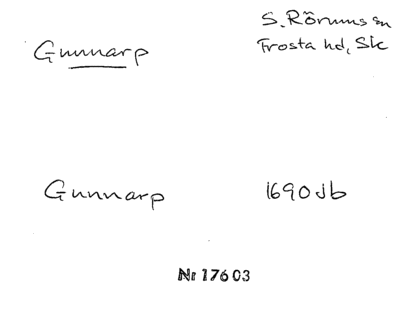 Gunnarp
S. Rörums sn
Frosta hd, Sk
Gunnarp
1690 Jb
Nr 17603